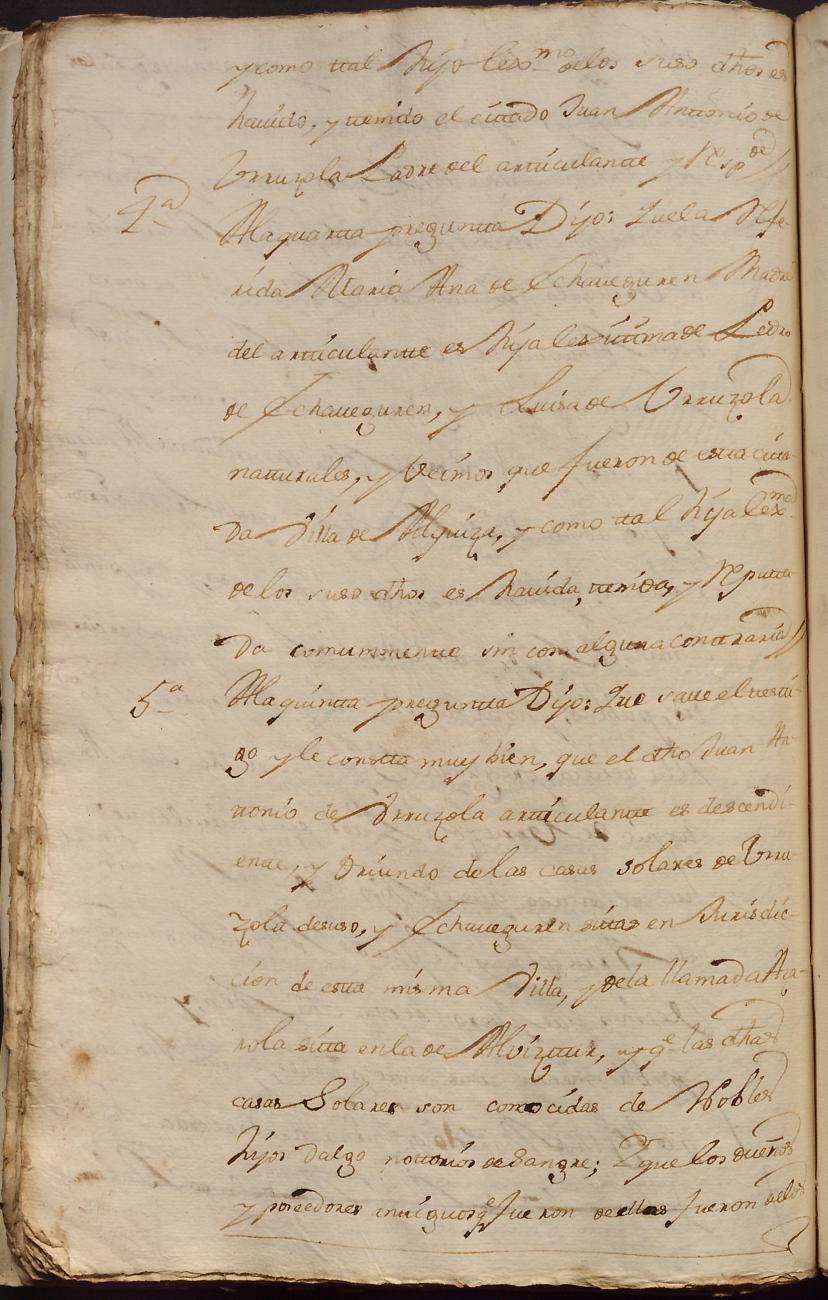 y como ttal Hijo lexmo delos suso dhos es
hauido, y ttenido el cittado Juan Anttonio de
Vrruzola Padre del artticulantte y R
4a
Ala quartta preguntta Dijo: Que la Refe-
rida Maria Ana de Echaueguren Madre
del artticulantte es hija lexittima de Pedro
de Echaueguren, y Luisa de Vrruzola
natturales, y Vecinos que fueron de estta citta-
da Villa de Alquiza, y como ttal hija lexma
de los suso dhos es hauida, ttenida, y Reputta-
da comunmentte sin cosa alguna conttraria
5a
Ala quintta preguntta Dijo: Que saue el testti-
go y le constta muy bien, que el dho Juan An-
ttonio de Vrruzola artticulantte es descendi-
entte, y Oriundo de las casas solares de Vrru-
zola desuso, y Echaueguren sittas en Jurisdic-
cion de estta misma Villa, y dela llamada
rola sitta en la de Alviztur, y qe las dhas
casas Solares son conocidas de Nobles
hijos dalgo nottorios de Sangre; Y que los dueños
y poseedores anttiguos qe fueron de ellas fueron delos